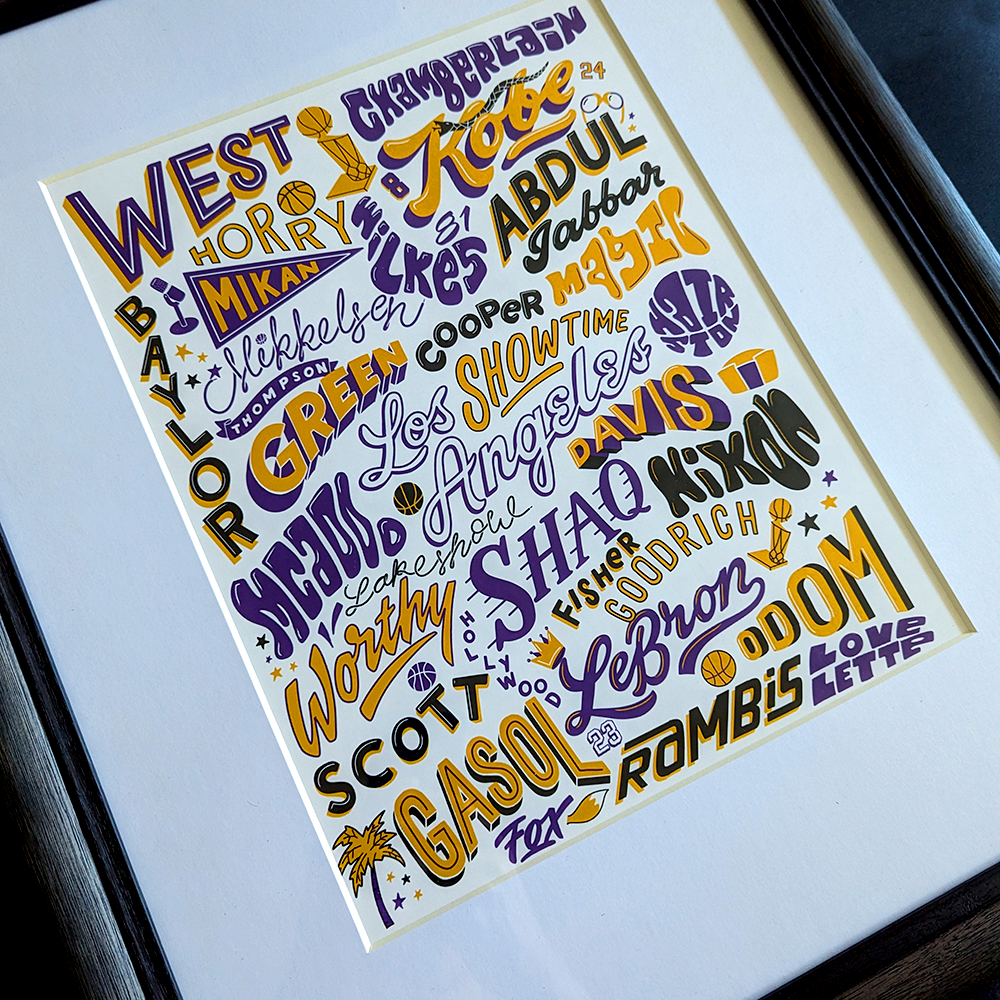 CHAMBERLAIN
WEST
Kobe
24
8
HORRY
ABDUL
Jabbar
WILKES
81
MIKAN
MAGIC
BAYLOR
Mikkelsen
COOPER
SHOWTIME
HAIRSTON
THOMPSON
GREEN
Los
Angeles
DAVIS
NIXON
MCADOO
Lakeshow
SHAQ
FISHER
GOODRICH
Worthy
HOLLYWOOD
LeBron
23
ODOM
LOVE
LETTE
SCOTT
GASOL
RAMBIS
FOX